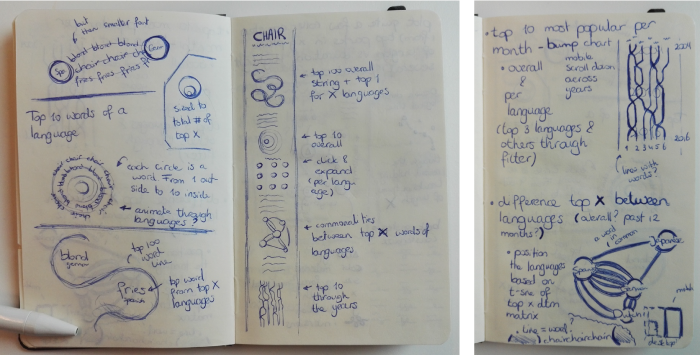 but
then smaller font
Spa
blond blond blond
chair chair chair
fries fries fries
sized to
total # of
top X
Top 10 words of a
language
chair chair chair
each circle is a
word. From 1 out
side to 10 inside
animate through
languages?
top 100
word
line
blond
german
fries
top word
from top X
languages
CHAIR
top 100 overall
string + top 1
for X languages
top 10
overall
click &
expand
(per lang-
age)
commonalities
between top X words of
languages
top 10
through
the years
• top 10 most popular per
month - bump chart
• overall
&
per
language
(top 3 languages &
others through
filter)
mobile
scroll down
across
years
2004
2016
1 2 3 4 5 6
lines with
words?
• difference top X between
languages (overall? past 12
months?)
a word
in common
Japanese
Spanish
German
Dutch
• position
the languages
based on
t-sne of
top X dtm
matrix
• line = word
chairchairchair
mobile
desktop